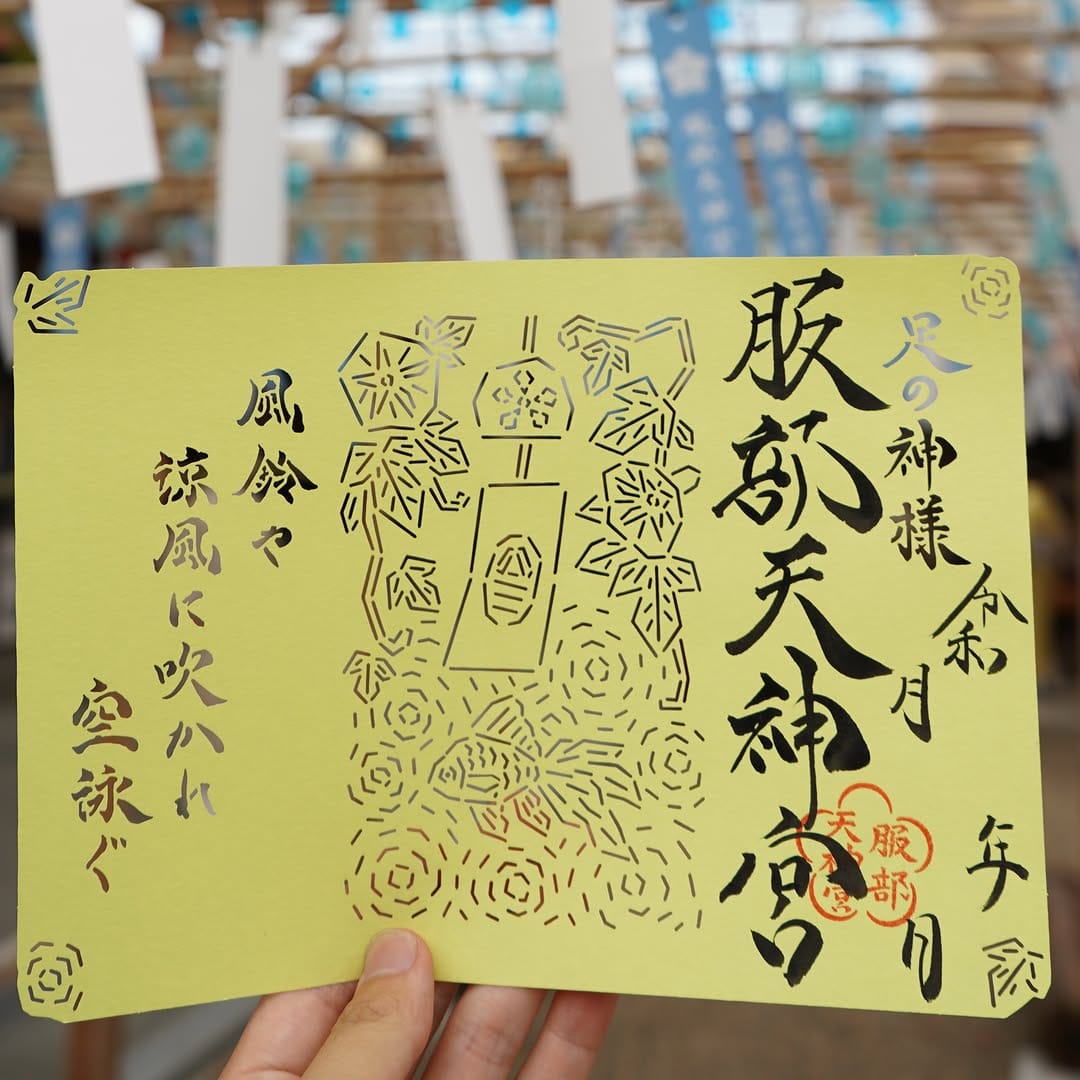 足の神様
令和 年
月 日
服部天神宮
服部
天神宮
風鈴や
涼風に吹かれ
空泳ぐ